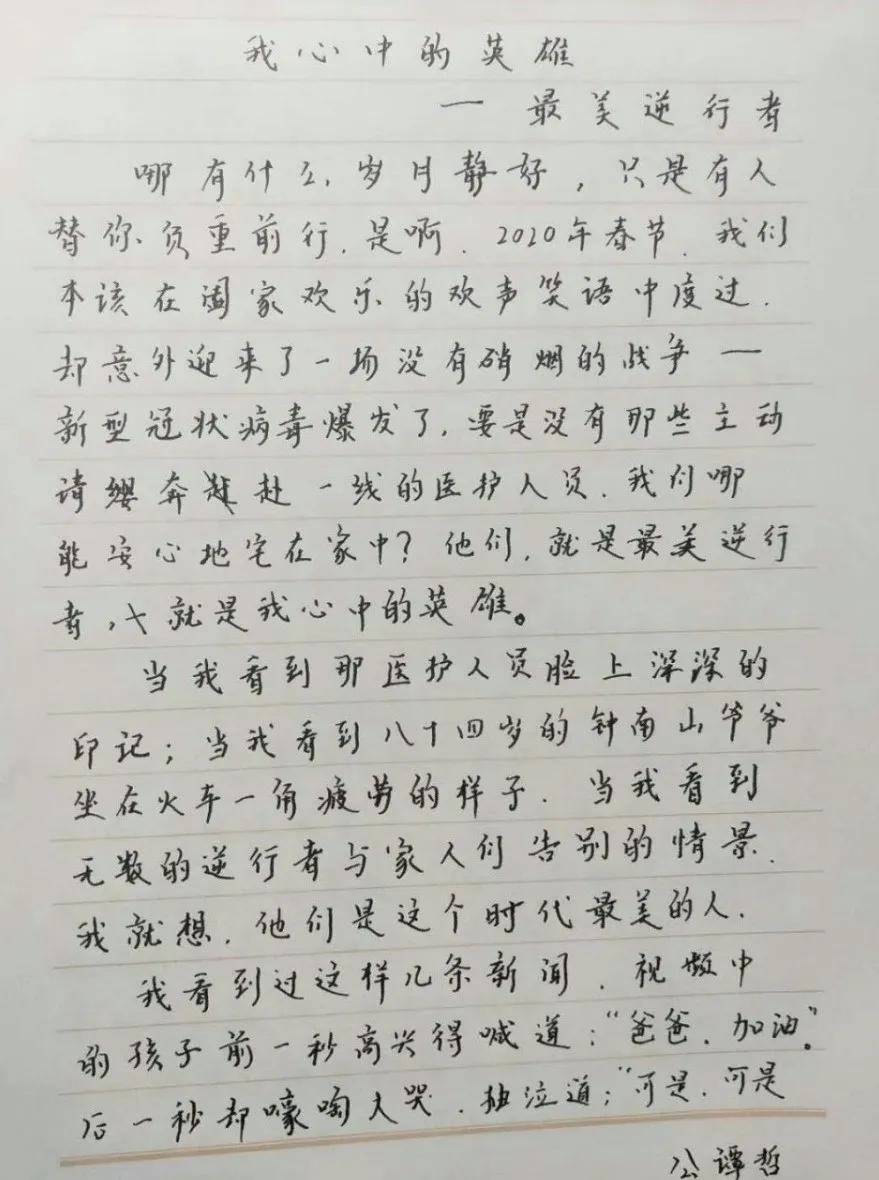 我心中的英雄
一 最美逆行者
哪有什么岁月静好，只是有人
替你负重前行.是啊.2020年春节.我们
本该在阖家欢乐的欢声笑语中度过.
却意外迎来了一场没有硝烟的战争一
新型冠状病毒爆发了.要是没有那些主动
请缨奔赴一线的医护人员.我们哪
能安心地宅在家中?他们.就是最美逆行
者,就是我心中的英雄。
当我看到那医护人员脸上深深的
印记;当我看到八十四岁的钟南山爷爷
坐在火车一角疲劳的样子.当我看到
无数的逆行者与家人们告别的情景.
我就想.他们是这个时代最美的人.
我看到过这样几条新闻.视频中
的孩子前一秒高兴得喊道:“爸爸.加油”。
后一秒却嚎啕大哭.抽泣道:“可是.可是
公谭哲